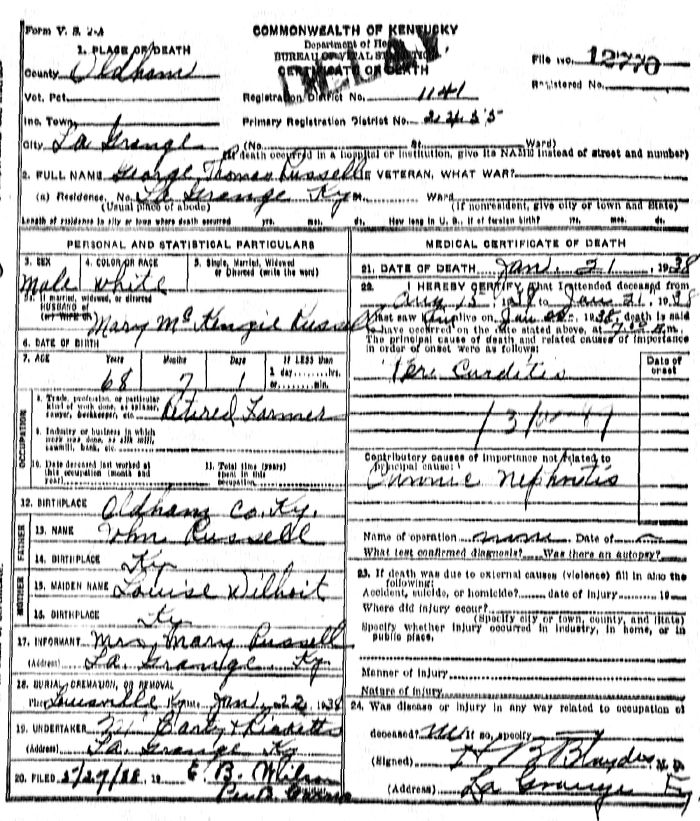 Form V. S. 2-A
COMMONWEALTH OF KENTUCKY
Department of
BUREAU OF VITAL STATISTICS
CERTIFICATE OF DEATH
File No. 12770
Registered No.
1. PLACE OF DEATH
County Oldham
Vot. Pct.
Registration District No. 1141
Inc. Town
Primary Registration District No. 2435
City La Grange
(No. St. Ward)
(If death occurred in a hospital or institution, give its NAME instead of street and number)
2. FULL NAME George Thomas Russell IF VETERAN, WHAT WAR?
(a) Residence, No. La Grange Ky. Ward
(Usual place of abode) (If nonresident, give city or town and State)
Length of residence in city or town where death occurred yrs. mos. ds. How long in U. S., if of foreign birth? yrs. mos. ds.
PERSONAL AND STATISTICAL PARTICULARS
3. SEX 4. COLOR OR RACE 5. Single, Married, Widowed or Divorced (write the word)
male white
5a. If married, widowed, or divorced
HUSBAND of
(or) WIFE of Mary McKenzie Russell
6. DATE OF BIRTH
7. AGE Years Months Days If LESS than
68 7 1 1 day hrs.
or min.
OCCUPATION
8. Trade, profession, or particular
kind of work done, as spinner,
sawyer, bookkeeper, etc. Retired Farmer
9. Industry or business in which
work was done, as silk mill,
sawmill, bank, etc.
10. Date deceased last worked at
this occupation (month and
year)
11. Total time (years)
spent in this
occupation
12. BIRTHPLACE Oldham Co. Ky.
FATHER
13. NAME John Russell
14. BIRTHPLACE Ky
MOTHER
15. MAIDEN NAME Louise Wilhoit
16. BIRTHPLACE Ky
17. INFORMANT Mrs. Mary Russell
(Address) La Grange Ky.
18. BURIAL, CREMATION, OR REMOVAL
Louisville Ky Jan. 22 1938
19. UNDERTAKER Ricketts
(Address) La Grange Ky
20. FILED 1/27/38, 19 E. B. Wilson
MEDICAL CERTIFICATE OF DEATH
21. DATE OF DEATH Jan. 21, 1938
22. I HEREBY CERTIFY, That I attended deceased from
Aug 15 to Jan 21, 1938
I last saw him alive on Jan 1938, death is said
to have occurred on the date stated above, at 7:00 a.m.
The principal cause of death and related causes of importance
in order of onset were as follows:
Date of
onset
Peri Carditis
Contributory causes of importance not related to
principal cause:
Chronic Nephritis
Name of operation none Date of
What test confirmed diagnosis? Was there an autopsy?
23. If death was due to external causes (violence) fill in also the
following:
Accident, suicide, or homicide? date of injury 19
Where did injury occur?
(Specify city or town, county, and State)
Specify whether injury occurred in industry, in home, or in
public place.
Manner of Injury
Nature of Injury
24. Was disease or injury in any way related to occupation of
deceased? no If so, specify
(Signed) H B Blaydes M. D.
(Address) La Grange Ky